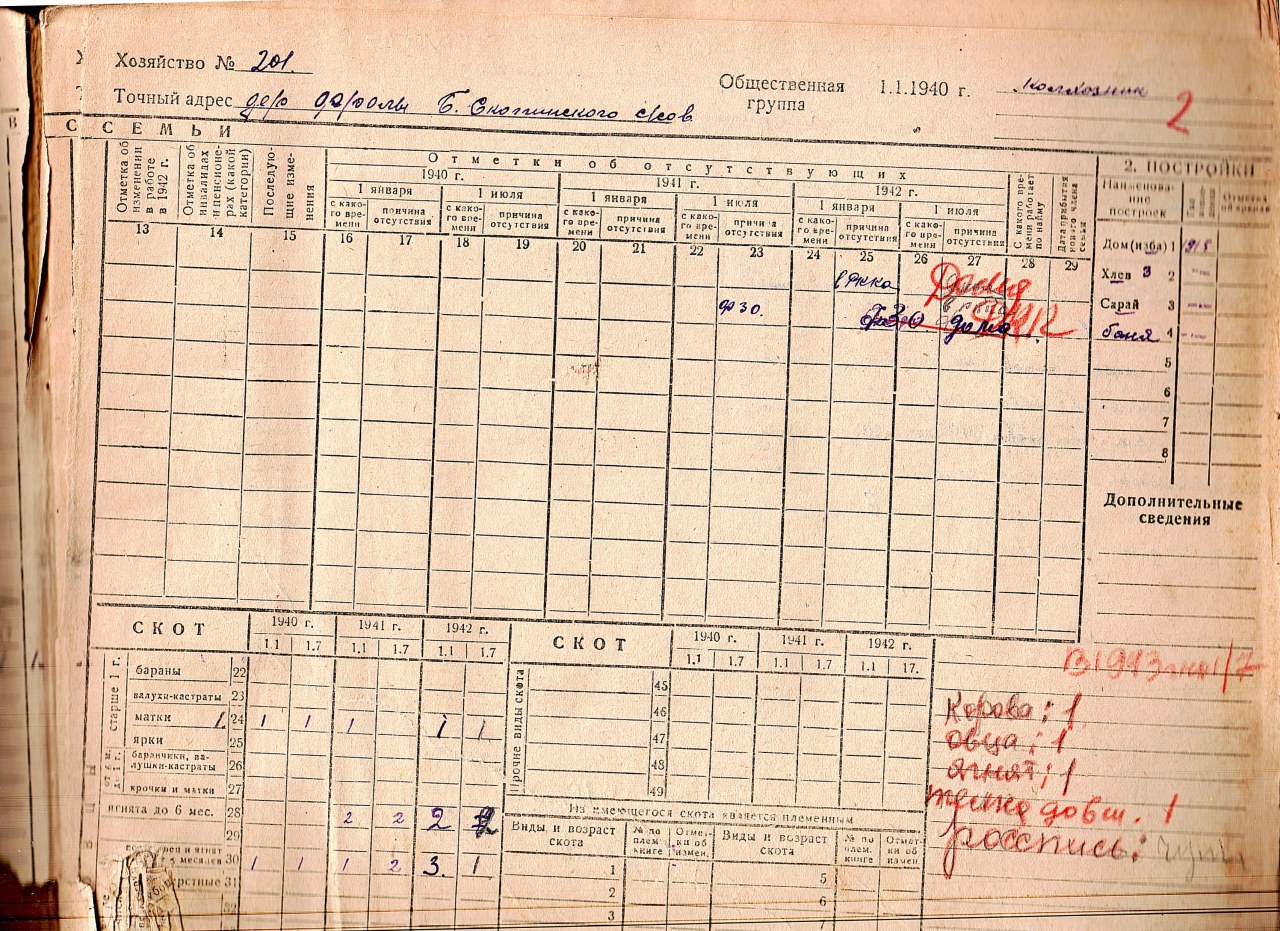 Хозяйство № 201.
Точный адрес дер Фролы Б. Скопинского с/сов
Общественная группа 1.1.1940 г. колхозник
2
С СЕМЬИ
Отметка об изменении в работе в 1942 г.
Отметка об инвалидах и пенсионерах (какой категории)
Последующие изменения
Отметки об отсутствующих
1940 г. 1941 г. 1942 г.
1 января 1 июля 1 января 1 июля 1 января 1 июля
с какого времени причина отсутствия с какого времени причина отсутствия с какого времени причина отсутствия с какого времени причина отсутствия с какого времени причина отсутствия с какого времени причина отсутствия
С какого времени работает по найму
Дата прибытия нового члена семьи
13 14 15 16 17 18 19 20 21 22 23 24 25 26 27 28 29
в ркка Дома
фзо. ФЗО дома
2. ПОСТРОЙКИ
Наименование построек
Дом (изба) 1
Хлев 3 2
Сарай 3
баня 4
5
6
7
8
Дополнительные сведения
СКОТ 1940 г. 1941 г. 1942 г.
1.1 1.7 1.1 1.7 1.1 1.7
старше 1 г.
бараны 22
валухи-кастраты 23
матки 1 24 1 1 1 1 1
ярки 25
баранчики, валушки-кастраты 26
крочки и матки 27
ягнята до 6 мес. 28 2 2 2
29
30 1 1 1 2 3. 1
31
32
СКОТ 1940 г. 1941 г. 1942 г.
1.1 1.7 1.1 1.7 1.1 17.
Прочие виды скота
45
46
47
48
49
Из имеющегося скота является племенным
Виды и возраст скота № по плем. книге Отметки об измен. Виды и возраст скота № по плем. книге Отметки об измен.
1 5
2 6
3 7
В 1943 на 1/7
Корова; 1
овца; 1
ягнят; 1
телка до 6 м. 1
роспись: